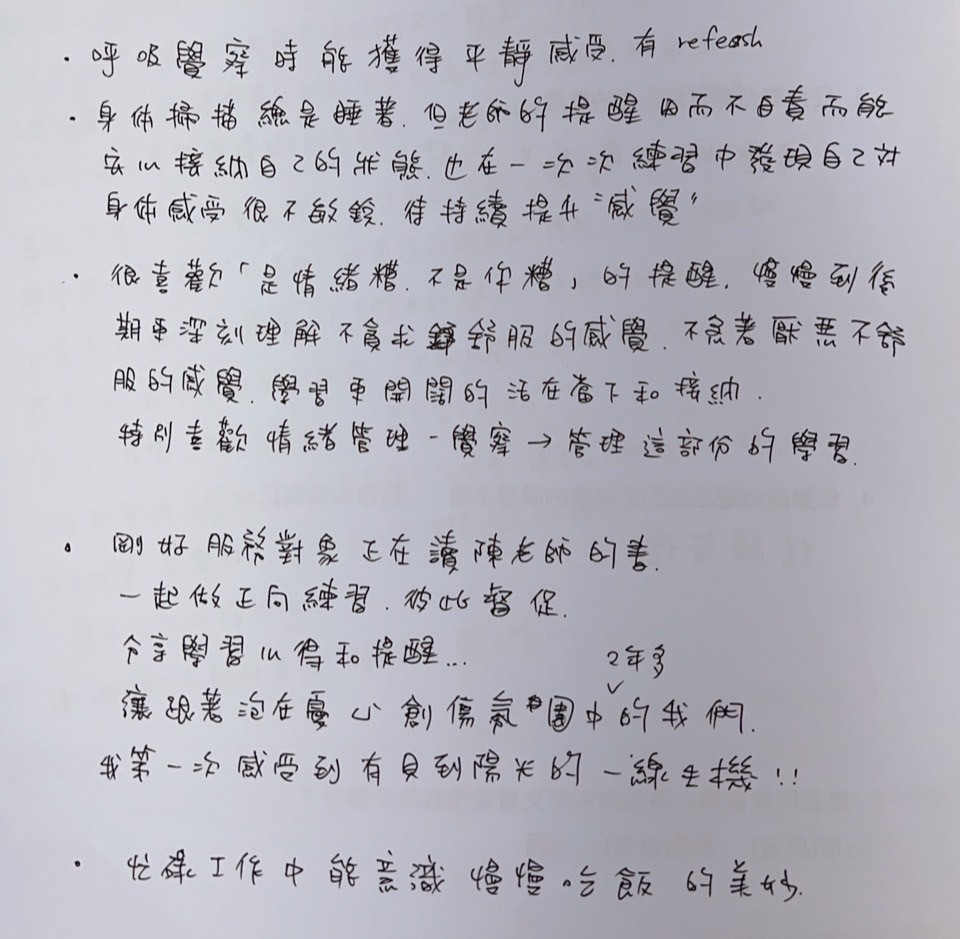 · 呼吸覺察時能獲得平靜感受. 有 refresh
· 身体掃描總是睡著. 但老師的提醒 因而不自責而能
安心接納自己的狀態. 也在一次次練習中發現自己対
身体感受很不敏銳. 待持續提升“感覺”
· 很喜歡「是情緒糟. 不是你糟」的提醒. 慢慢到後
期更深刻理解不貪求舒服的感覺. 不急著厭惡不舒
服的感覺. 學習更開闊的活在當下和接納.
特別喜歡情緒管理-覺察→管理這部份的學習.
· 剛好服務對象正在讀陳老師的書.
一起做正向練習. 彼此督促.
分享學習心得和提醒...
讓跟著泡在憂心創傷氛圍中2年多的我們.
我第一次感受到有見到陽光的一線生機!!
· 忙碌工作中能意識慢慢吃飯的美妙.